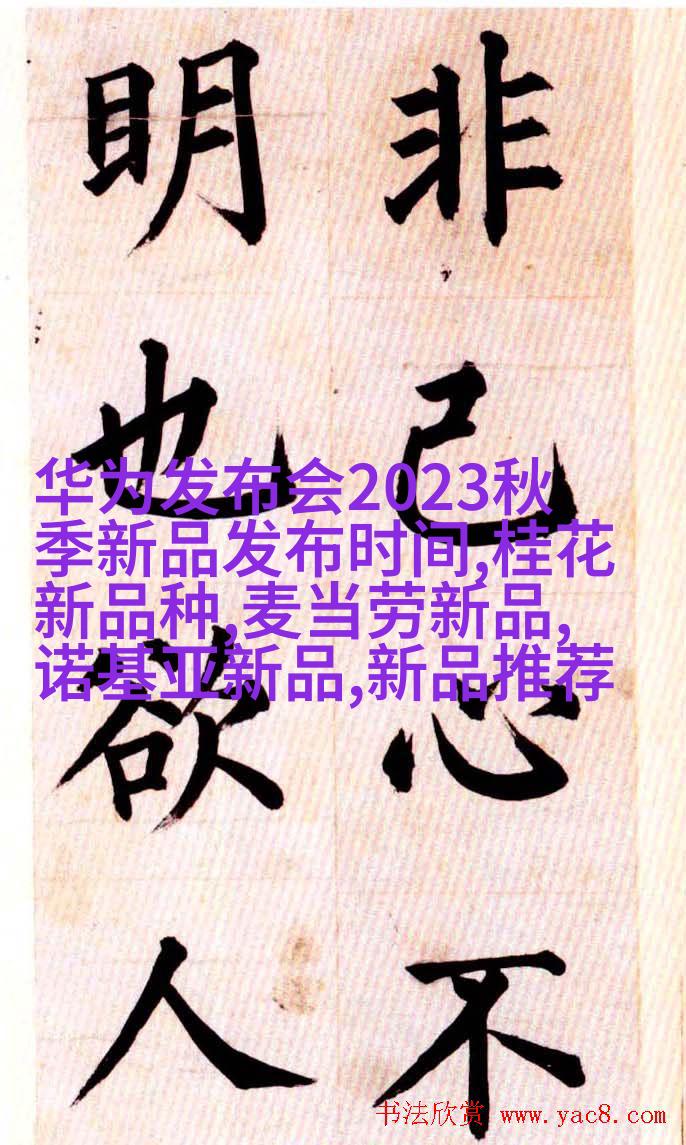 非己心不
明也欲人
华为发布会2023秋
季新品发布时间,桂花
新品种,麦当劳新品,
诺基亚新品,新品推荐
书法欣赏 www.yac8.com